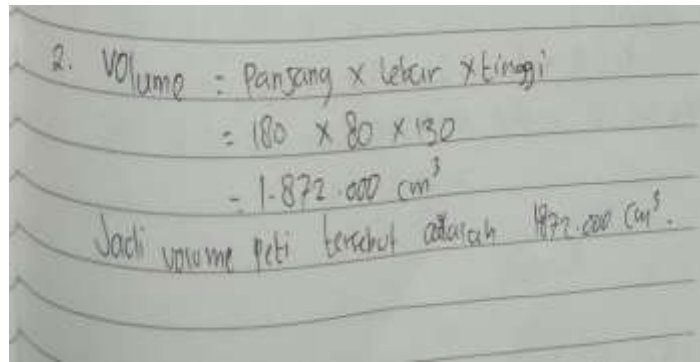 2. Volume = Panjang x lebar x tinggi
= 180 x 80 x 130
= 1.872.000 cm³
Jadi volume peti tersebut adalah 1872.000 cm³.